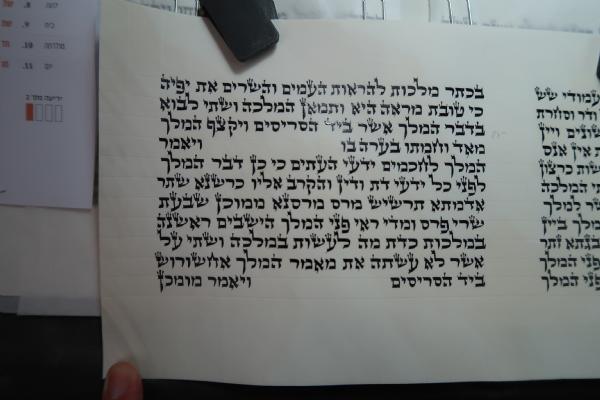 בכתר מלכות להראות העמים והשרים את יפיה
כי טובת מראה היא ותמאן המלכה ושתי לבוא
בדבר המלך אשר ביד הסריסים ויקצף המלך
מאד וחמתו בערה בו ויאמר
המלך לחכמים ידעי העתים כי כן דבר המלך
לפני כל ידעי דת ודין והקרב אליו כרשנא שתר
אדמתא תרשיש מרס מרסנא ממוכן שבעת
שרי פרס ומדי ראי פני המלך הישבים ראשנה
במלכות כדת מה לעשות במלכה ושתי על
אשר לא עשתה את מאמר המלך אחשורוש
ביד הסריסים ויאמר מומכן
עמודי שש
ודר וסחרת
שונים ויין
אין אנס
כרצון
המלכה
למלך
המלך ביין
זתר
פני המלך
המלך
8.
9.
מולדתה 10.
יום 11.
יריעה מתוך 2